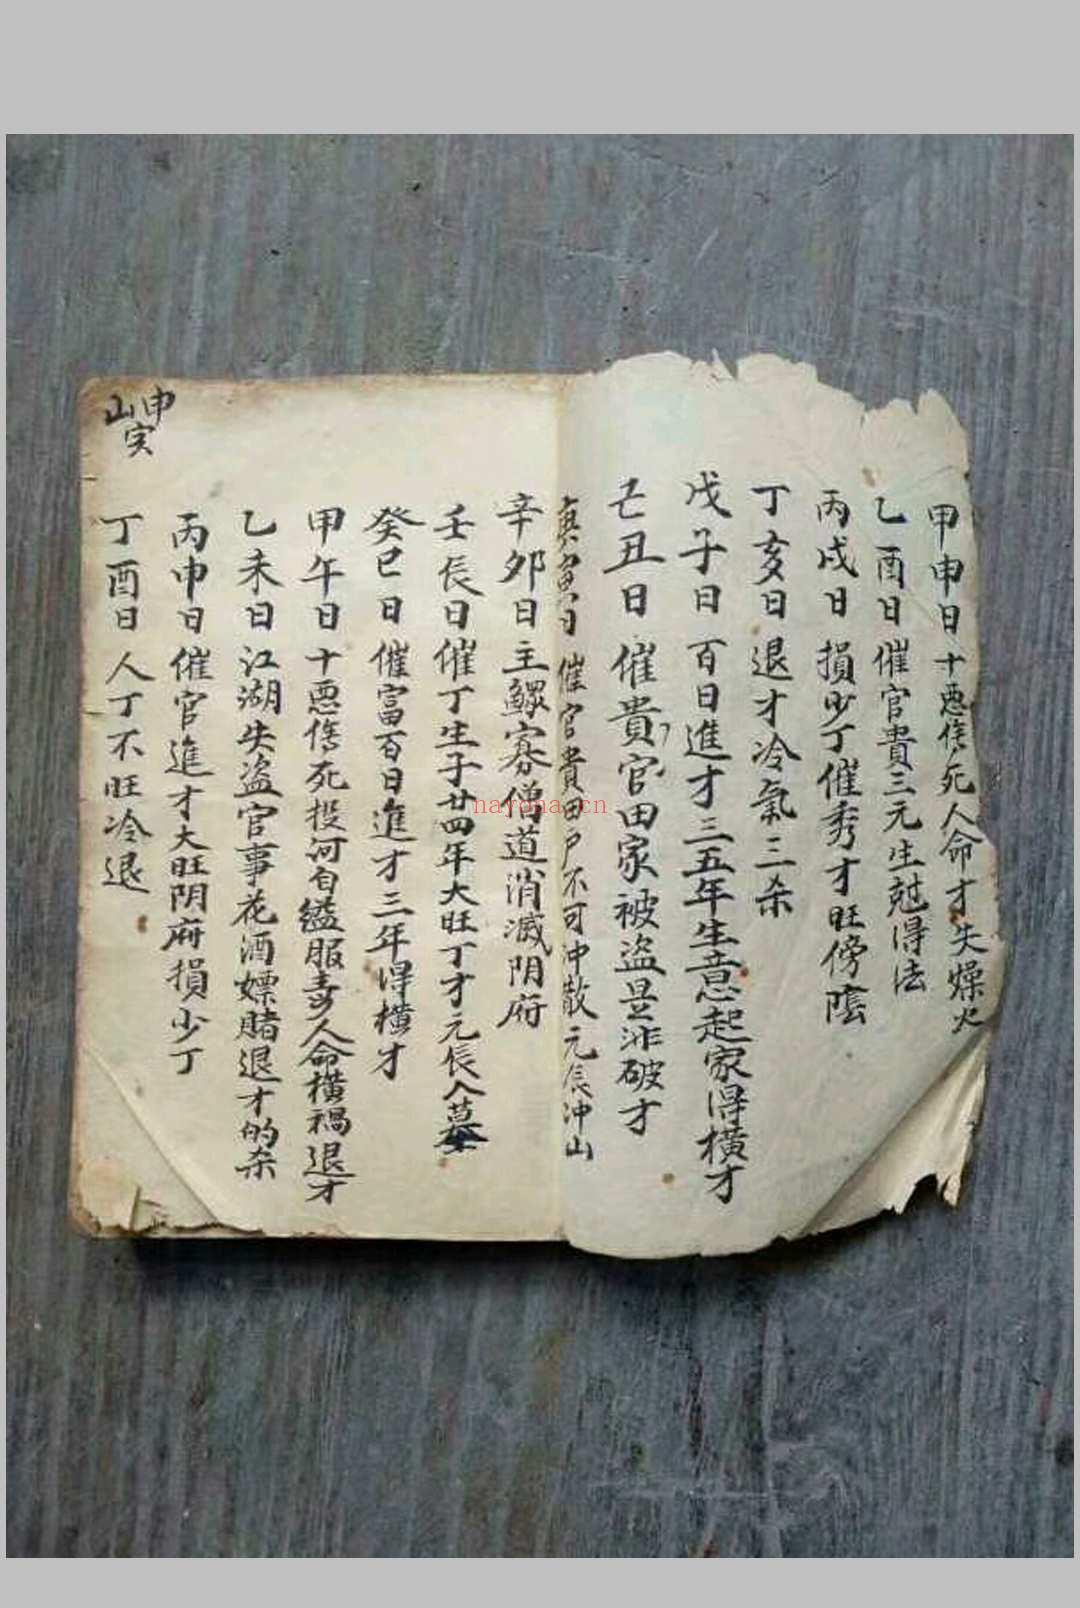 甲申日十悪傷死人命才失燥火
乙酉日催官貴三元生尅得法
丙戌日損少丁催秀才旺傍蔭
丁亥日退才冷氣三杀
戊子日百日進才三五年生意起家得橫才
己丑日催貴官田家被盜是非破才
庚寅日催官貴田戶不可冲散元辰冲山
辛夘日主鰥寡僧道消滅阴府
壬辰日催丁生子廿四年大旺丁才元辰入墓
癸巳日催富百日進才三年得橫才
甲午日十悪傷死投河自縊服毒人命橫禍退才
乙未日江湖失盜官事花酒嫖賭退才的杀
丙申日催官進才大旺阴府損少丁
丁酉日人丁不旺冷退
申山
nayona.cn